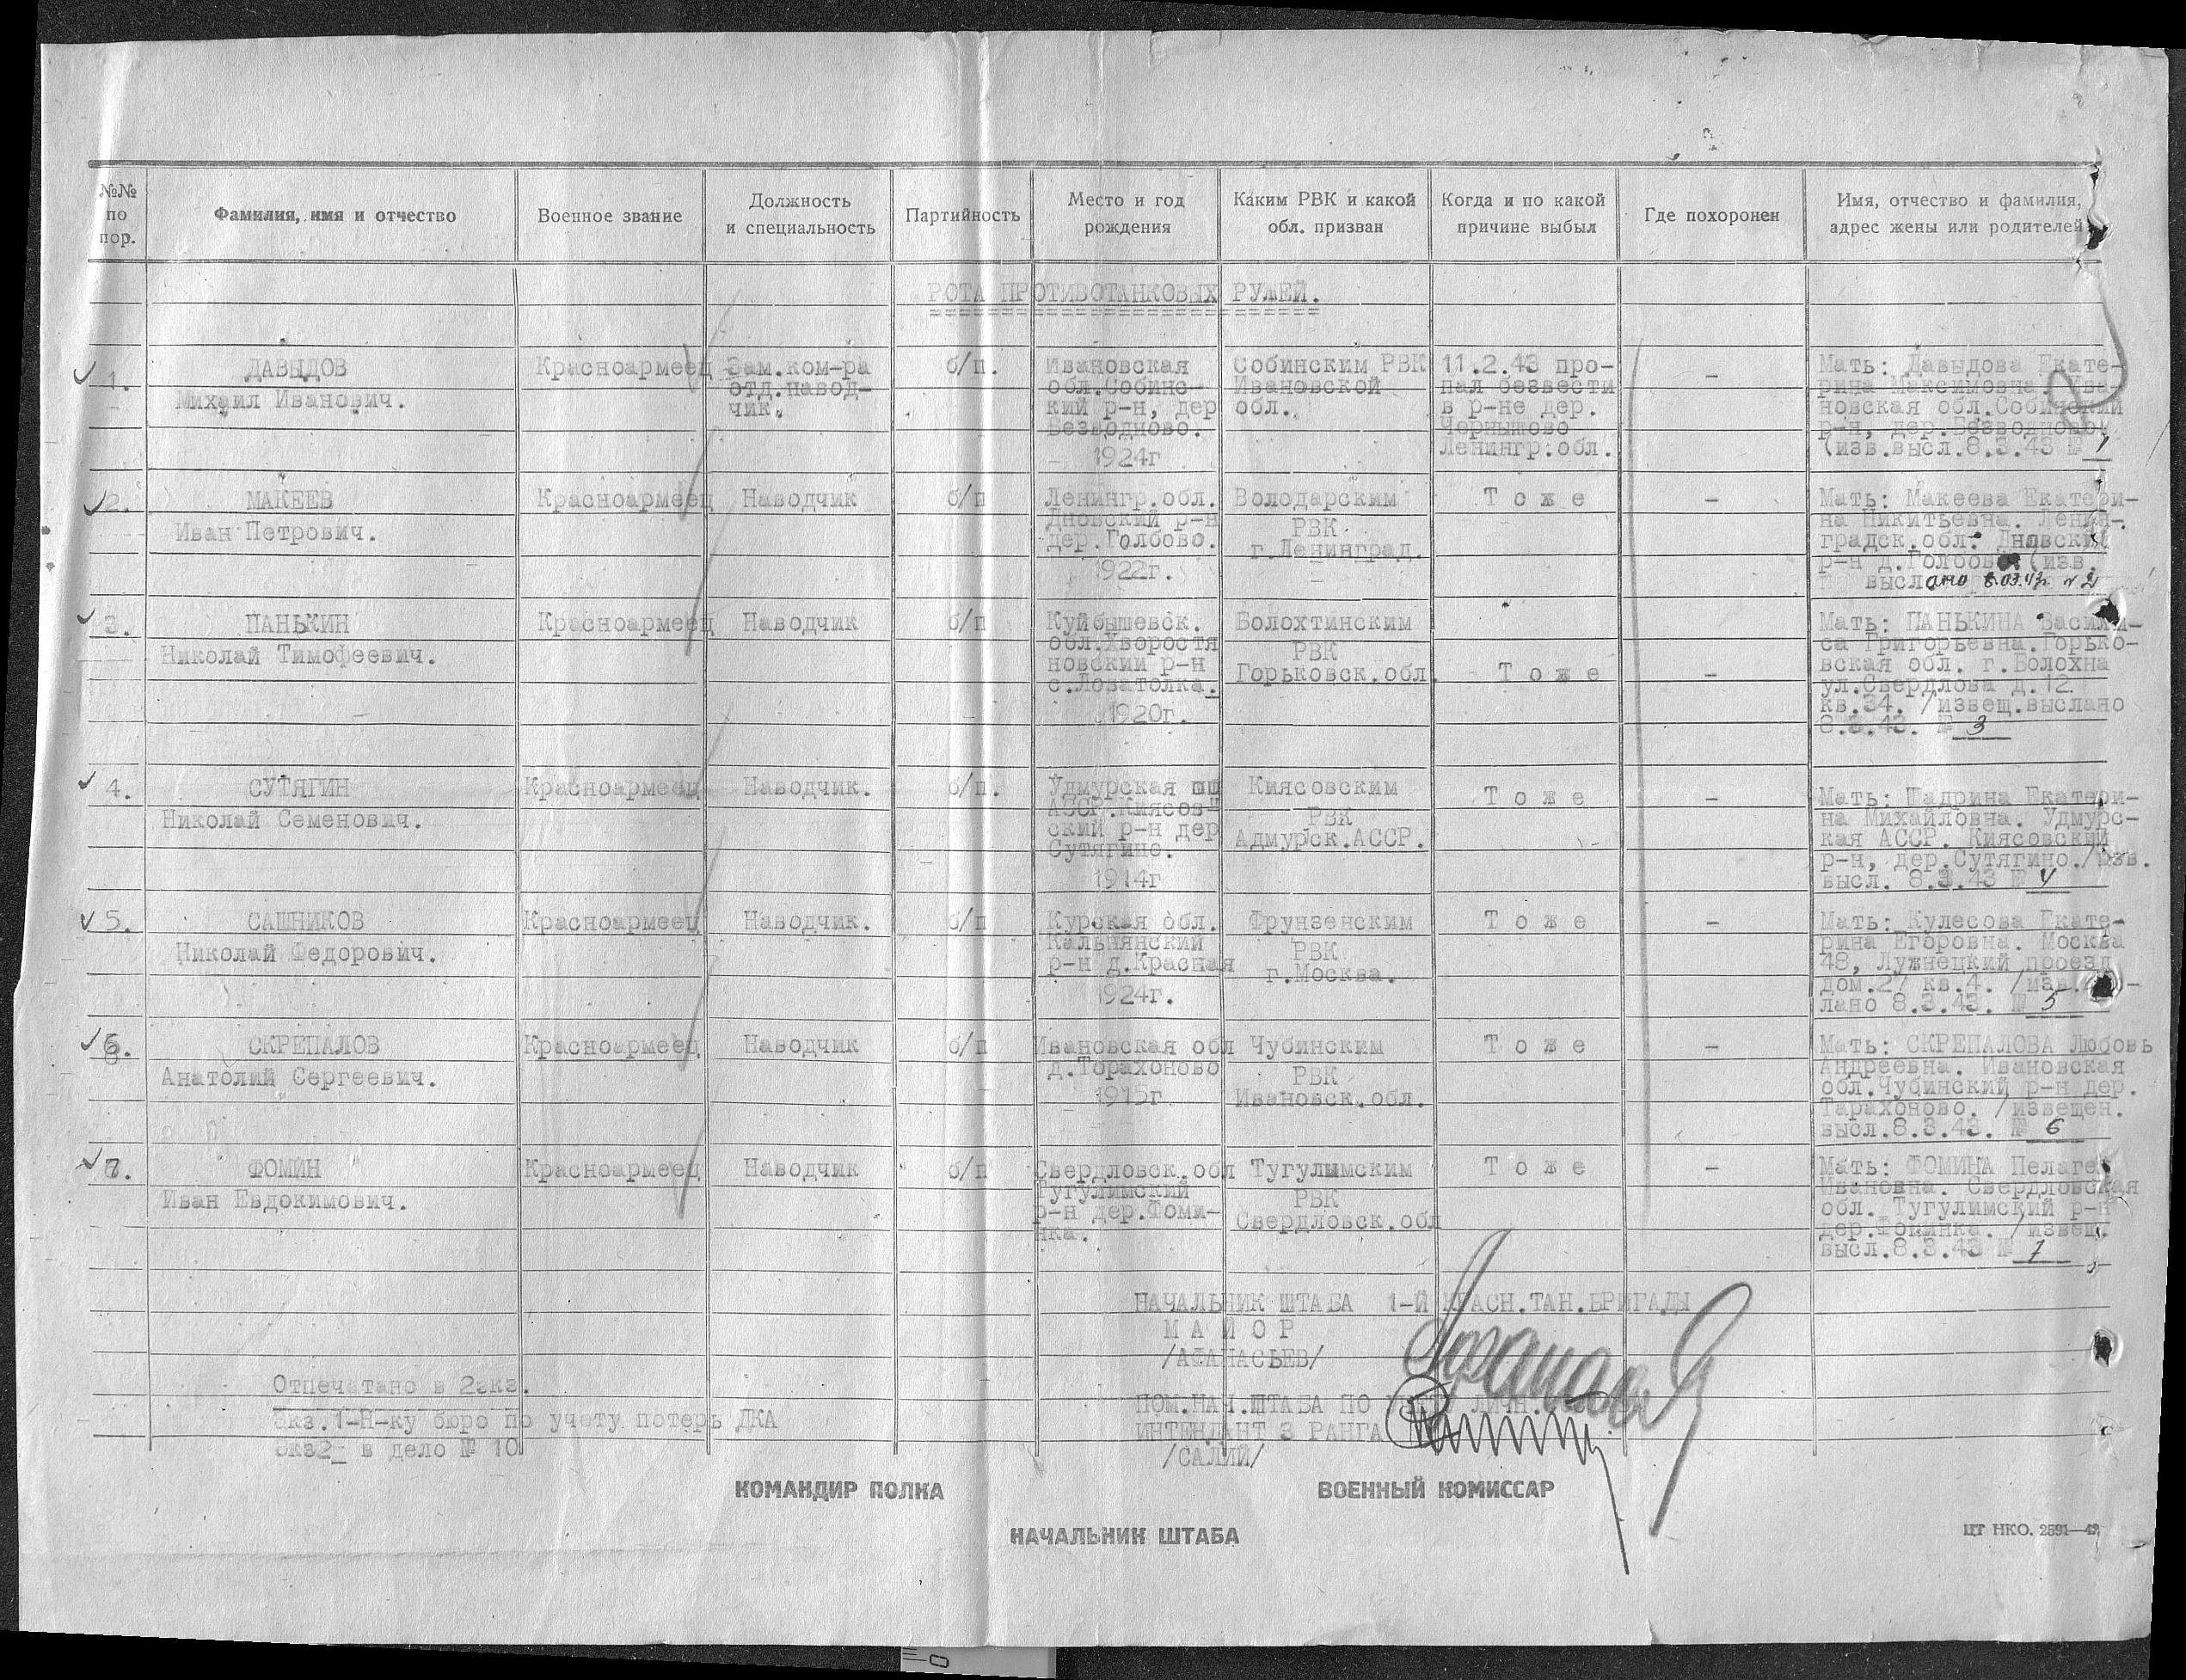 №№ по пор.
Фамилия, имя и отчество
Военное звание
Должность и специальность
Партийность
Место и год рождения
Каким РВК и какой обл. призван
Когда и по какой причине выбыл
Где похоронен
Имя, отчество и фамилия, адрес жены или родителей
РОТА ПРОТИВОТАНКОВЫХ РУЖЕЙ.
1.
ДАВЫДОВ
Михаил Иванович.
Красноармеец
Зам.ком-ра
отд.навод-
чик.
б/п.
Ивановская
обл.Собинс-
кий р-н, дер
Безводново.
1924г
Собинским РВК
Ивановской
обл.
11.2.43 про-
пал безвести
в р-не дер.
Чернышово
Ленингр.обл.
–
Мать: Давыдова Екате-
рина Максимовна. Ива-
новская обл.Собинский
р-н, дер.Безводново
(изв.высл.8.3.43 № 1
2.
МАКЕЕВ
Иван Петрович.
Красноармеец
Наводчик
б/п
Ленингр.обл.
Дновский р-н
дер.Голбово.
1922г.
Володарским
РВК
г.Ленинград.
Т о ж е
–
Мать: Макеева Екатери-
на Никитьевна. Ленин-
градск.обл. Дновский
р-н д.Голбово (изв.
выслано 8.03.43г. № 2
3.
ПАНЬКИН
Николай Тимофеевич.
Красноармеец
Наводчик
б/п
Куйбышевск.
обл.Хворостя
новский р-н
с.Ловатолка.
1920г.
Болохтинским
РВК
Горьковск.обл.
Т о ж е
–
Мать: ПАНЬКИНА Васили-
са Григорьевна.Горько-
вская обл. г.Болохна
ул.Свердлова д.12
кв.34. /извещ.выслано
8.3.43. № 3
4.
СУТЯГИН
Николай Семенович.
Красноармеец
Наводчик.
б/п.
Удмурская
АССР.Киясов-
ский р-н дер
Сутягино.
1914г
Киясовским
РВК
Адмурск.АССР.
Т о ж е
–
Мать: Шадрина Екатери-
на Михайловна. Удмурс-
кая АССР. Киясовский
р-н, дер.Сутягино./изв.
высл. 8.3.43 № 4
5.
САШНИКОВ
Николай Федорович.
Красноармеец
Наводчик.
б/п
Курская обл.
Кальнянский
р-н д.Красная
1924г.
Фрунзенским
РВК
г.Москва.
Т о ж е
–
Мать: Кулесова Екате-
рина Егоровна. Москва
48, Лужнецкий проезд
дом.27 кв.4. /изв.
лано 8.3.43. № 5
6.
СКРЕПАЛОВ
Анатолий Сергеевич.
Красноармеец
Наводчик
б/п
Ивановская обл
д.Торахоново
1915г
Чубинским
РВК
Ивановск.обл.
Т о ж е
–
Мать: СКРЕПАЛОВА Любовь
Андреевна. Ивановская
обл.Чубинский р-н дер.
Тарахоново. /извещен.
высл.8.3.43. № 6
7.
ФОМИН
Иван Евдокимович.
Красноармеец
Наводчик
б/п
Свердловск.обл
Тугулимский
р-н дер.Фоми-
нка.
Тугулымским
РВК
Свердловск.обл
Т о ж е
–
Мать: ФОМИНА Пелаге
Ивановна. Свердловская
обл. Тугулимский р-н
дер.Фоминка. /извещ.
высл.8.3.43 № 7
НАЧАЛЬНИК ШТАБА 1-Й КРАСН.ТАН.БРИГАДЫ
М А Й О Р
/АФАНАСЬЕВ/
Отпечатано в 2экз.
Экз.1-Н-ку бюро по учету потерь ДКА
Экз2_ в дело № 10
ПОМ.НАЧ.ШТАБА ПО УЧЕТУ ЛИЧН.
ИНТЕНДАНТ 3 РАНГА
/САЛИЙ/
КОМАНДИР ПОЛКА
ВОЕННЫЙ КОМИССАР
НАЧАЛЬНИК ШТАБА
ЦТ НКО. 2591—42